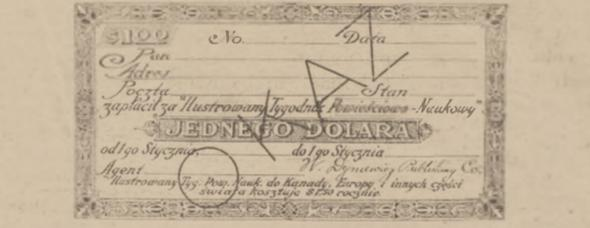 $1.00 No. Data
Pan
Adres
Poczta Stan
zapłacił za "Ilustrowany Tygodnik Powieściowo-Naukowy"
JEDNEGO DOLARA
od 1go Stycznia, do 1go Stycznia
Agent W. Dyniewicz Publishing Co.
Ilustrowany Tyg. Pow. Nauk. do Kanady, Europy i innych części
świata kosztuje $1.50 rocznie.
OKAZ